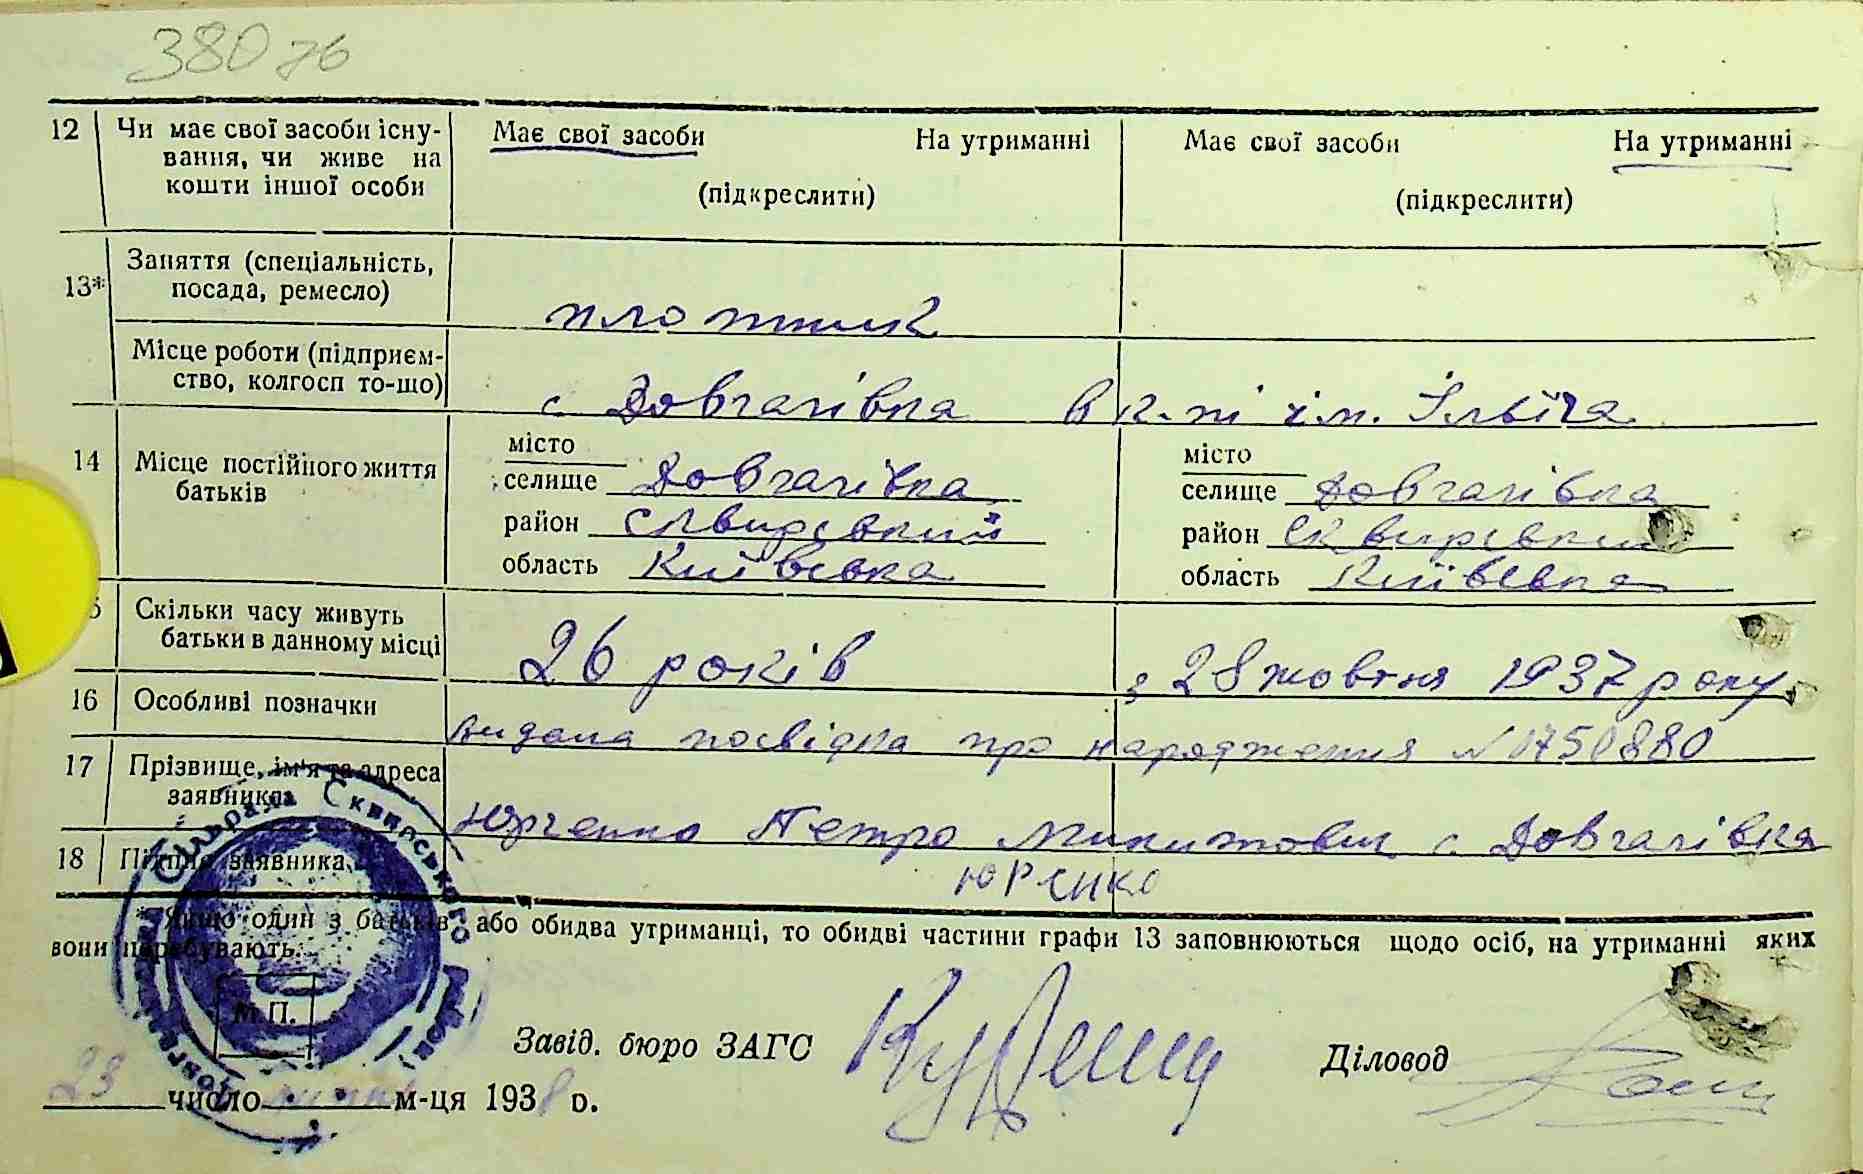 380 зб
12 Чи має свої засоби існу-
вання, чи живе на
кошти іншої особи
Має свої засоби На утриманні
(підкреслити)
Має свої засоби На утриманні
(підкреслити)
13* Заняття (спеціальність,
посада, ремесло)
плотник
Місце роботи (підприєм-
ство, колгосп то-що)
с. Довгалівка в к-пі ім. Ілліча
14 Місце постійного життя
батьків
місто
селище Довгалівка
район Сквирський
область Київська
місто
селище Довгалівка
район Сквирський
область Київська
Скільки часу живуть
батьки в данному місці
26 років
з 28 жовтня 1937 року
16 Особливі позначки
видана посвідка про народження N 0750880
17 Прізвище, ім'я та адреса
заявника
Юрченко Петро Микитович с. Довгалівка
18 Підпис заявника
ЮРЄНКО
* Якщо один з батьків або обидва утриманці, то обидві частини графи 13 заповнюються щодо осіб, на утриманні яких
вони перебувають.
Сільрада Сквирського району
М.П.
Завід. бюро ЗАГС
Діловод
23 число м-ця 1938 р.